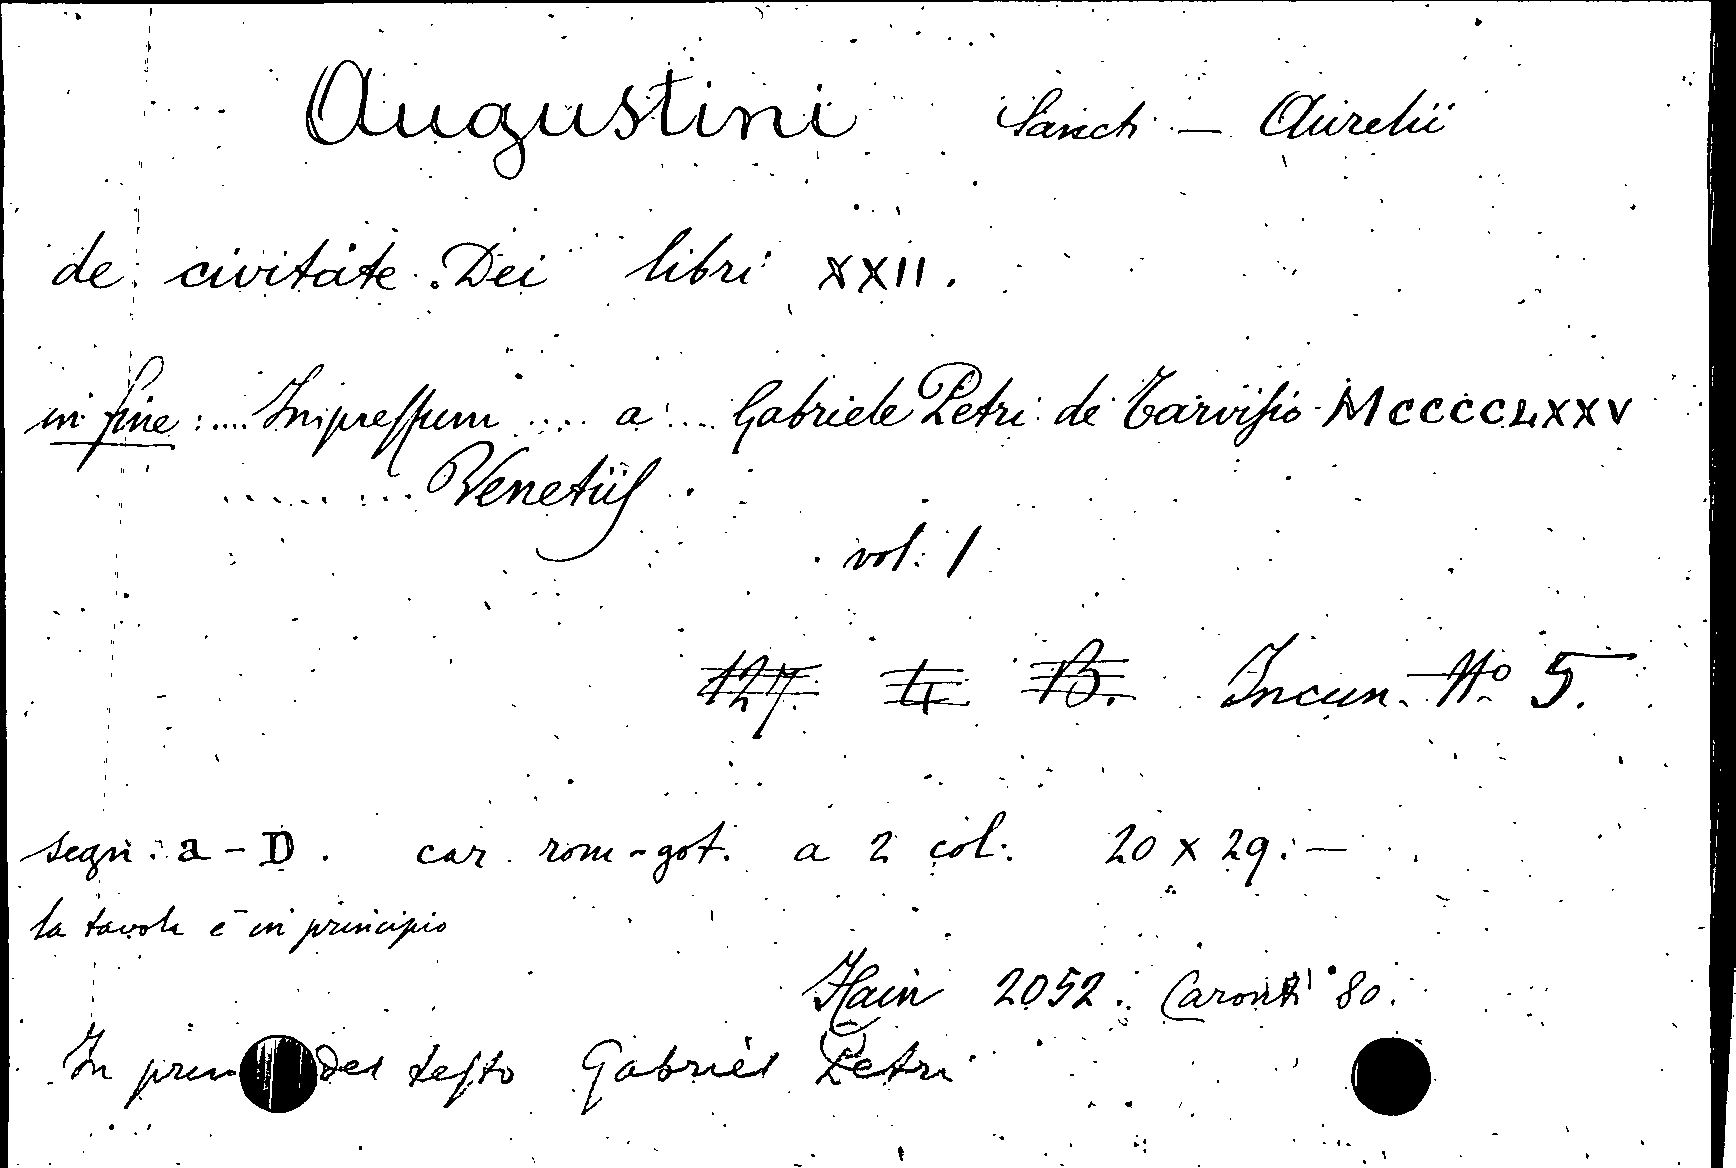 Augustini Sancti — Aurelii
de civitate Dei libri XXII.
in fine: .... Impressum .... a .... Gabriele Petri de Tarvisio MCCCCLXXV
........ Venetiis
vol. 1
127. 4 B. Incun. No 5.
segn. a-D. car. rom-got. a 2 col. 20 x 29. —
la tavola è in principio
Hain 2052. Caronti 80.
In prin del testo Gabriel Petri